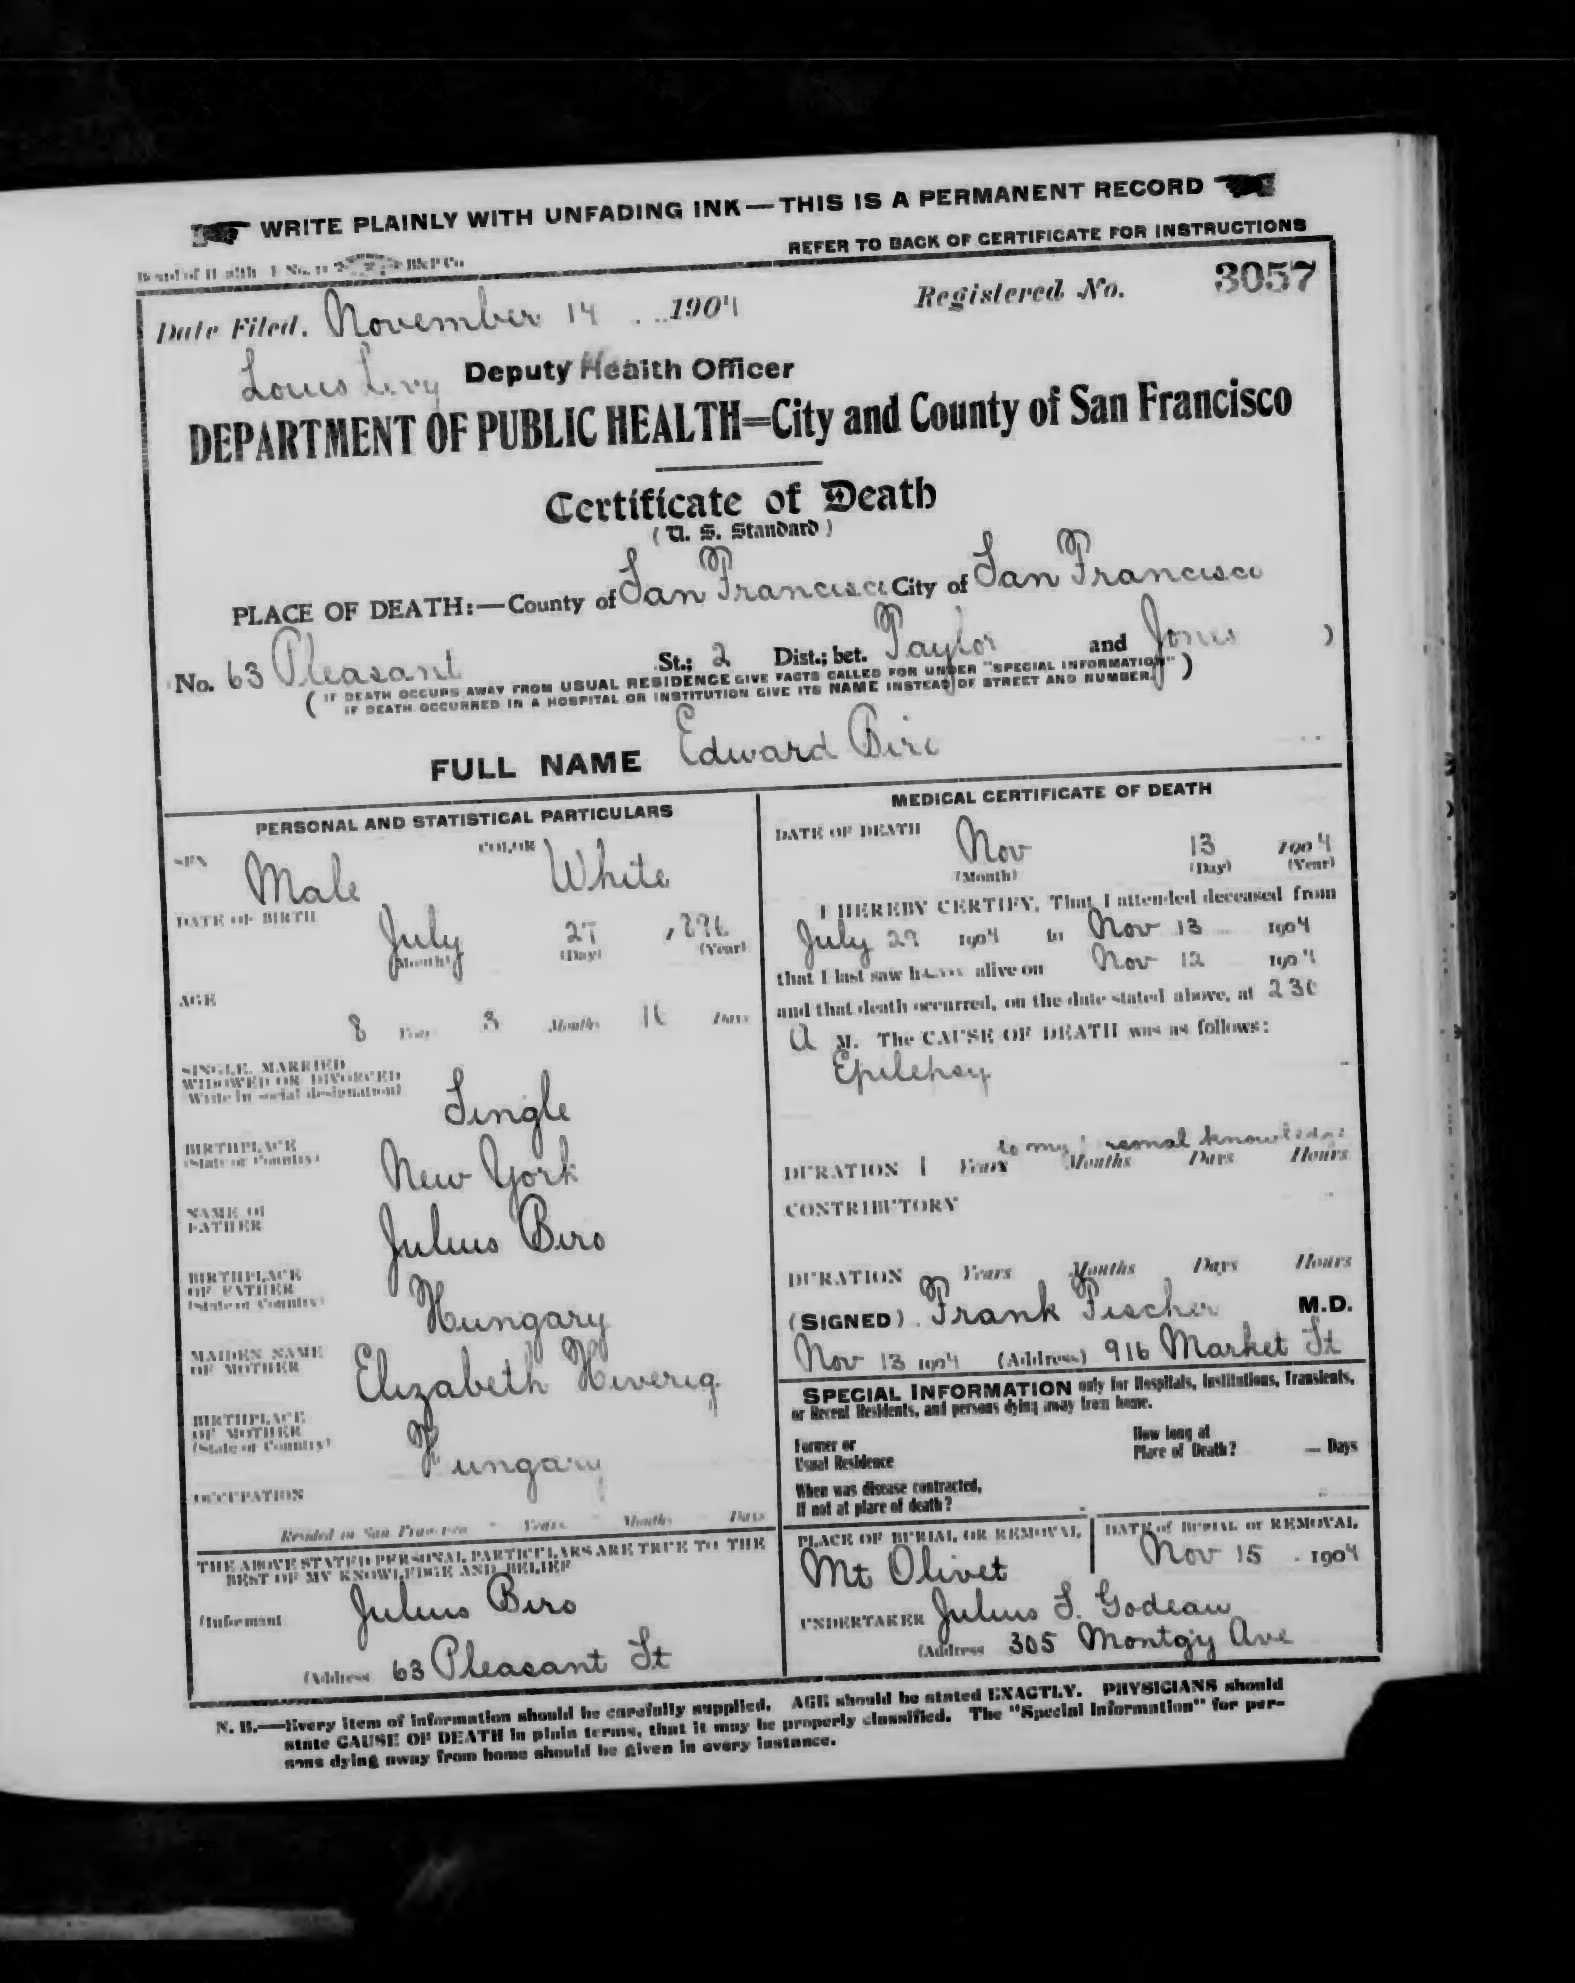 WRITE PLAINLY WITH UNFADING INK—THIS IS A PERMANENT RECORD
REFER TO BACK OF CERTIFICATE FOR INSTRUCTIONS
Board of Health B&P Co
Date Filed, November 14 1904 Registered No. 3057
Louis Levy Deputy Health Officer
DEPARTMENT OF PUBLIC HEALTH=City and County of San Francisco
Certificate of Death
(U. S. Standard)
PLACE OF DEATH:—County of San Francisco City of San Francisco
No. 63 Pleasant St.; 2 Dist.; bet. Taylor and Jones )
( IF DEATH OCCURS AWAY FROM USUAL RESIDENCE GIVE FACTS CALLED FOR UNDER "SPECIAL INFORMATION" )
IF DEATH OCCURRED IN A HOSPITAL OR INSTITUTION GIVE ITS NAME INSTEAD OF STREET AND NUMBER.
FULL NAME Edward Biro
PERSONAL AND STATISTICAL PARTICULARS
SEX Male COLOR White
DATE OF BIRTH July 27 1896
(Month) (Day) (Year)
AGE
8 Years 3 Months 16 Days
SINGLE, MARRIED
WIDOWED OR DIVORCED
(Write in social designation)
Single
BIRTHPLACE
(State or Country)
New York
NAME OF
FATHER
Julius Biro
BIRTHPLACE
OF FATHER
(State or Country)
Hungary
MAIDEN NAME
OF MOTHER
Elizabeth
BIRTHPLACE
OF MOTHER
(State or Country)
Hungary
OCCUPATION
Resided in San Francisco Years Months Days
THE ABOVE STATED PERSONAL PARTICULARS ARE TRUE TO THE
BEST OF MY KNOWLEDGE AND BELIEF
(Informant Julius Biro
(Address 63 Pleasant St
MEDICAL CERTIFICATE OF DEATH
DATE OF DEATH Nov 13 1904
(Month) (Day) (Year)
I HEREBY CERTIFY, That I attended deceased from
July 29 1904 to Nov 13 1904
that I last saw him alive on Nov 12 1904
and that death occurred, on the date stated above, at 2 30
A M. The CAUSE OF DEATH was as follows:
Epilepsy
to my personal knowledge
DURATION 1 Years Months Days Hours
CONTRIBUTORY
DURATION Years Months Days Hours
(SIGNED) Frank Fischer M.D.
Nov 13 1904 (Address) 916 Market St
SPECIAL INFORMATION only for Hospitals, Institutions, Transients,
or Recent Residents, and persons dying away from home.
Former or
Usual Residence
How long at
Place of Death? — Days
When was disease contracted,
If not at place of death?
PLACE OF BURIAL OR REMOVAL
Mt Olivet
DATE of BURIAL or REMOVAL
Nov 15 1904
UNDERTAKER Julius S. Godeau
(Address 305 Montgy Ave
N. B.—Every item of information should be carefully supplied. AGE should be stated EXACTLY. PHYSICIANS should
state CAUSE OF DEATH in plain terms, that it may be properly classified. The "Special Information" for per-
sons dying away from home should be given in every instance.